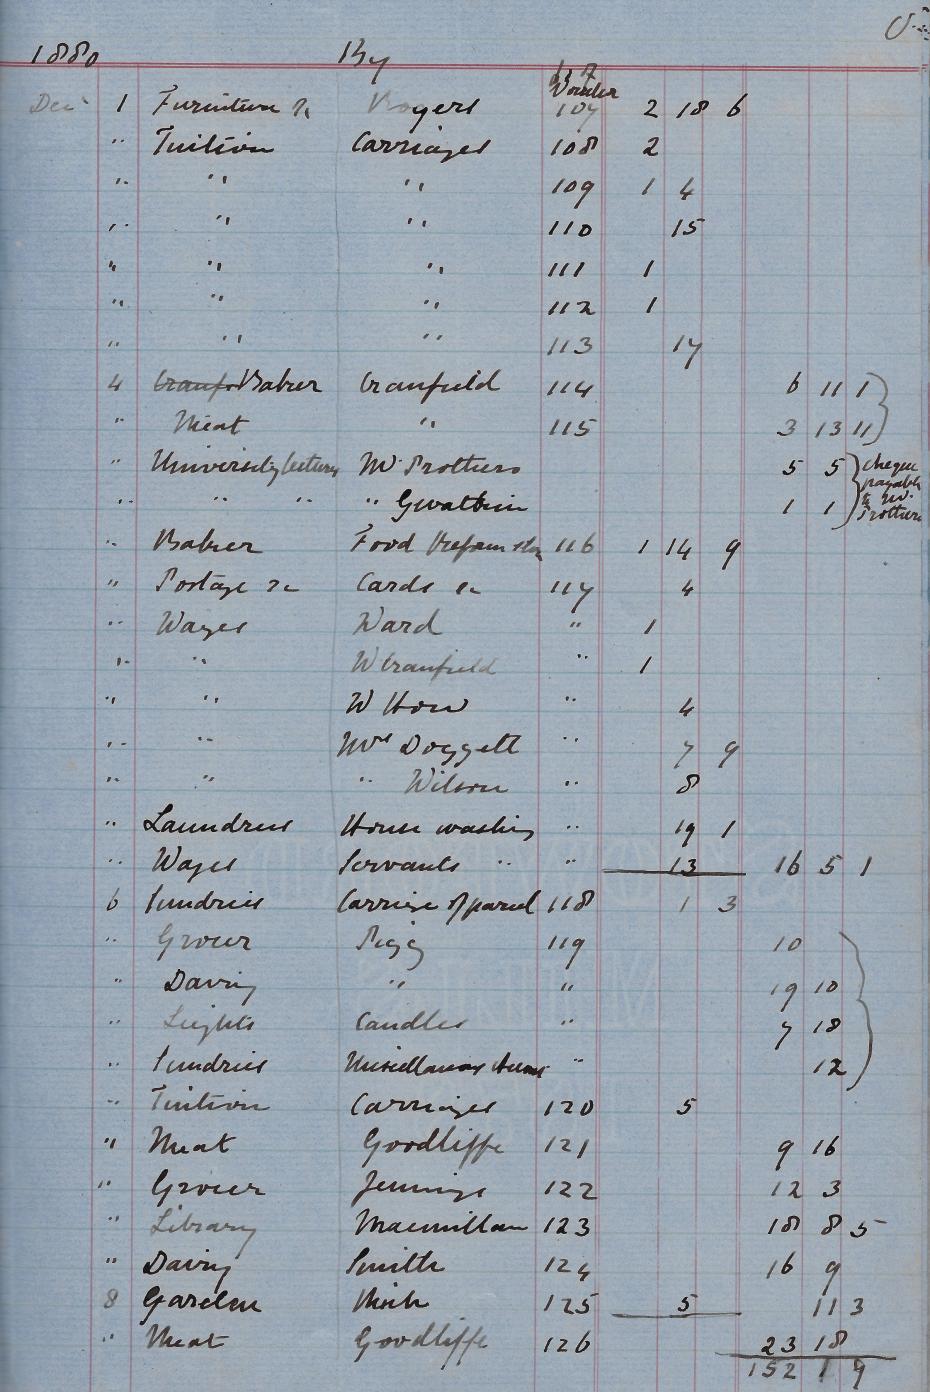 1880 By
Voucher
Dec 1 Furniture &c Rogers 107 2 18 6
" Tuition Carriages 108 2
" " " 109 1 4
" " " 110 15
" " " 111 1
" " " 112 1
" " " 113 17
4 Cranf Baker Cranfield 114 6 11 1
" Meat " 115 3 13 11
" University lectures Mr Prothero 5 5 cheque payable to Mr. Prothero
" " " " Gwatkin 1 1
" Baker Food 116 1 14 9
" Postage &c Cards &c 117 4
" Wages Ward " 1
" " W Cranfield " 1
" " W How " 4
" " Mrs Doggett " 7 9
" " " Wilson " 8
" Laundress House washing " 19 1
" Wages Servants " " 13 16 5 1
6 Sundries Carriage of parcel 118 1 3
" Grocer Pigg 119 10
" Dairy " " 19 10
" Lights Candles " 7 18
" Sundries Miscellaneous "  12
" Tuition Carriages 120 5
" Meat Goodliffe 121 9 16
" Grocer Jennings 122 12 3
" Library Macmillan 123 18 8 5
" Dairy Smith 124 16 9
8 Garden 125 5 11 3
" Meat Goodliffe 126 23 18
152 1 9